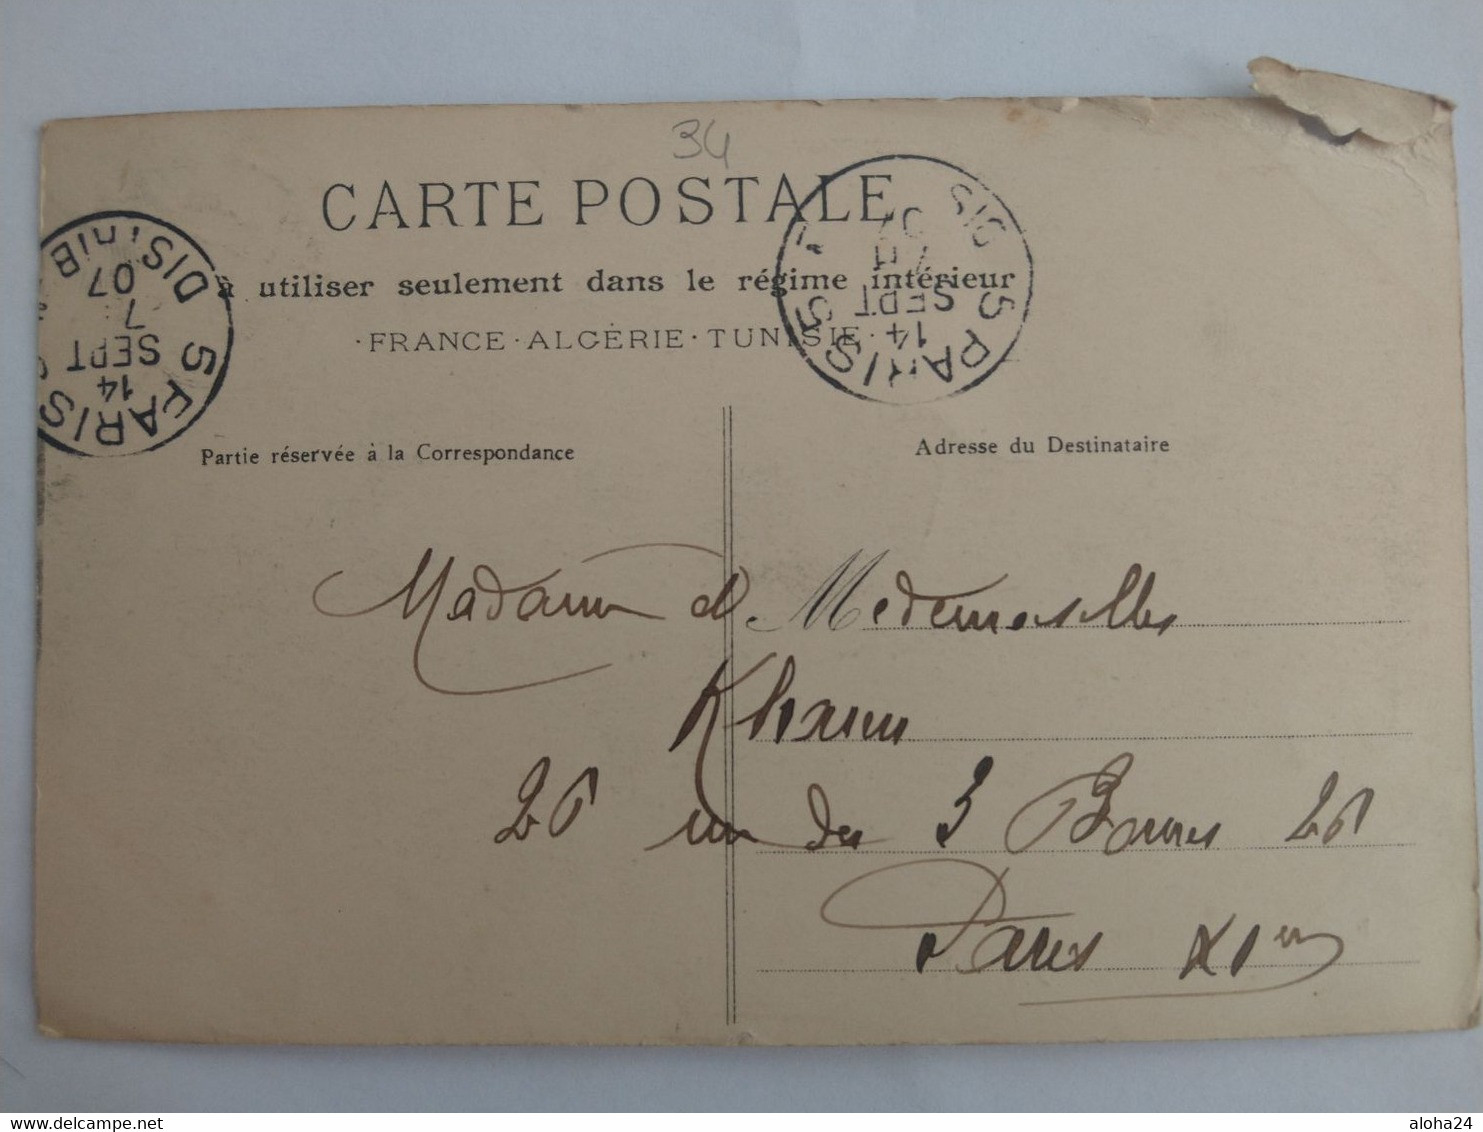 34
CARTE POSTALE
à utiliser seulement dans le régime intérieur
·FRANCE·ALGÉRIE·TUNISIE·
5 PARIS 5 DISTRIB
14
SEPT
7
07
5 PARIS 5 DIS
14
SEPT
07
Partie réservée à la Correspondance
Adresse du Destinataire
Madame et Medemoiselles
Khann
26 rue des 3 Bornes 26
Paris XIem
www.delcampe.net
aloha24